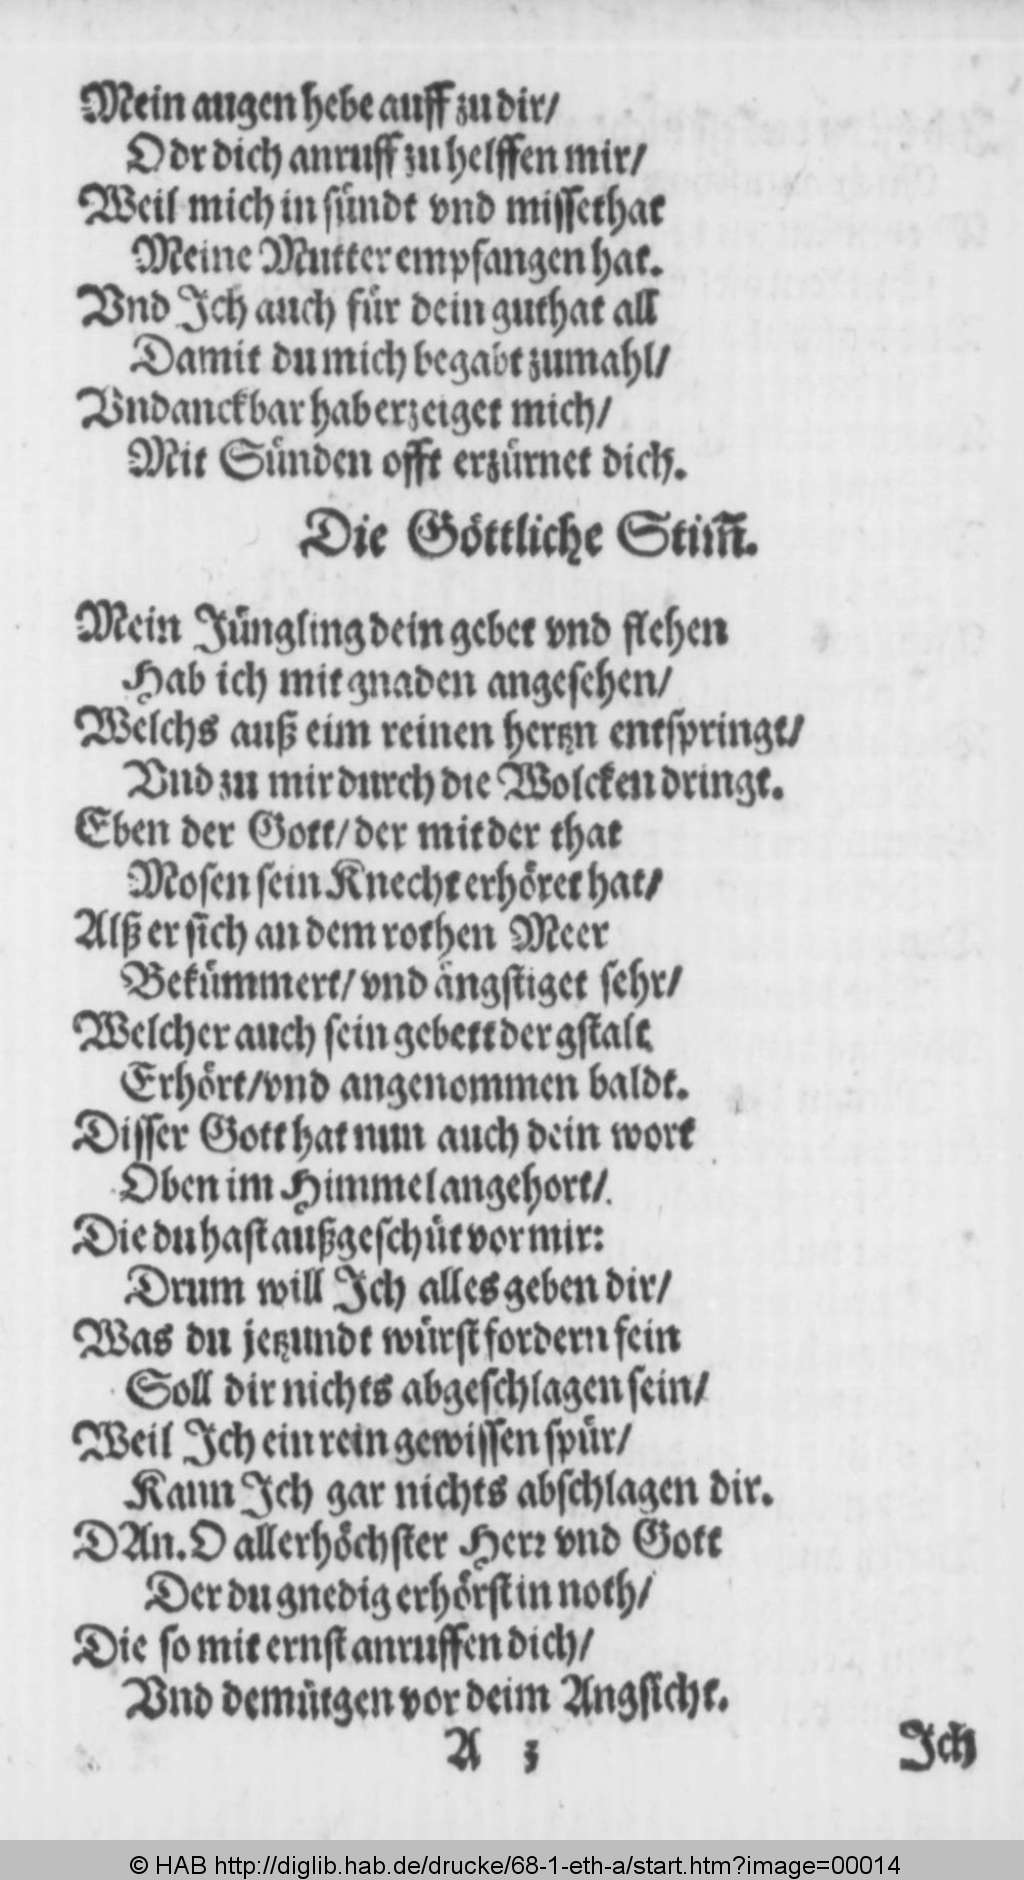 Mein augen hebe auff zu dir/
Odr dich anruff zu helffen mir/
Weil mich in sündt vnd missethat
Meine Mutter empfangen hat.
Vnd Ich auch für dein guthat all
Damit du mich begabt zumahl/
Vndanckbar hab erzeiget mich/
Mit Sünden offt erzürnet dich.
Die Göttliche Stim̃.
Mein Jüngling dein gebet vnd flehen
Hab ich mit gnaden angesehen/
Welchs auß eim reinen hertzn entspringt/
Vnd zu mir durch die Wolcken dringt.
Eben der Gott/ der mit der that
Mosen sein Knecht erhöret hat/
Alß er sich an dem rothen Meer
Bekümmert/ vnd ängstiget sehr/
Welcher auch sein gebett der gstalt
Erhört/ vnd angenommen baldt.
Disser Gott hat nun auch dein wort
Oben im Himmel angehort/
Die du hast außgeschüt vor mir:
Drum will Ich alles geben dir/
Was du jetzundt würst fordern fein
Soll dir nichts abgeschlagen sein/
Weil Ich ein rein gewissen spür/
Kann Ich gar nichts abschlagen dir.
DAn. O allerhöchster Herr vnd Gott
Der du gnedig erhörst in noth/
Die so mit ernst anruffen dich/
Vnd demütgen vor deim Angsicht.
A 3 Ich
© HAB http://diglib.hab.de/drucke/68-1-eth-a/start.htm?image=00014